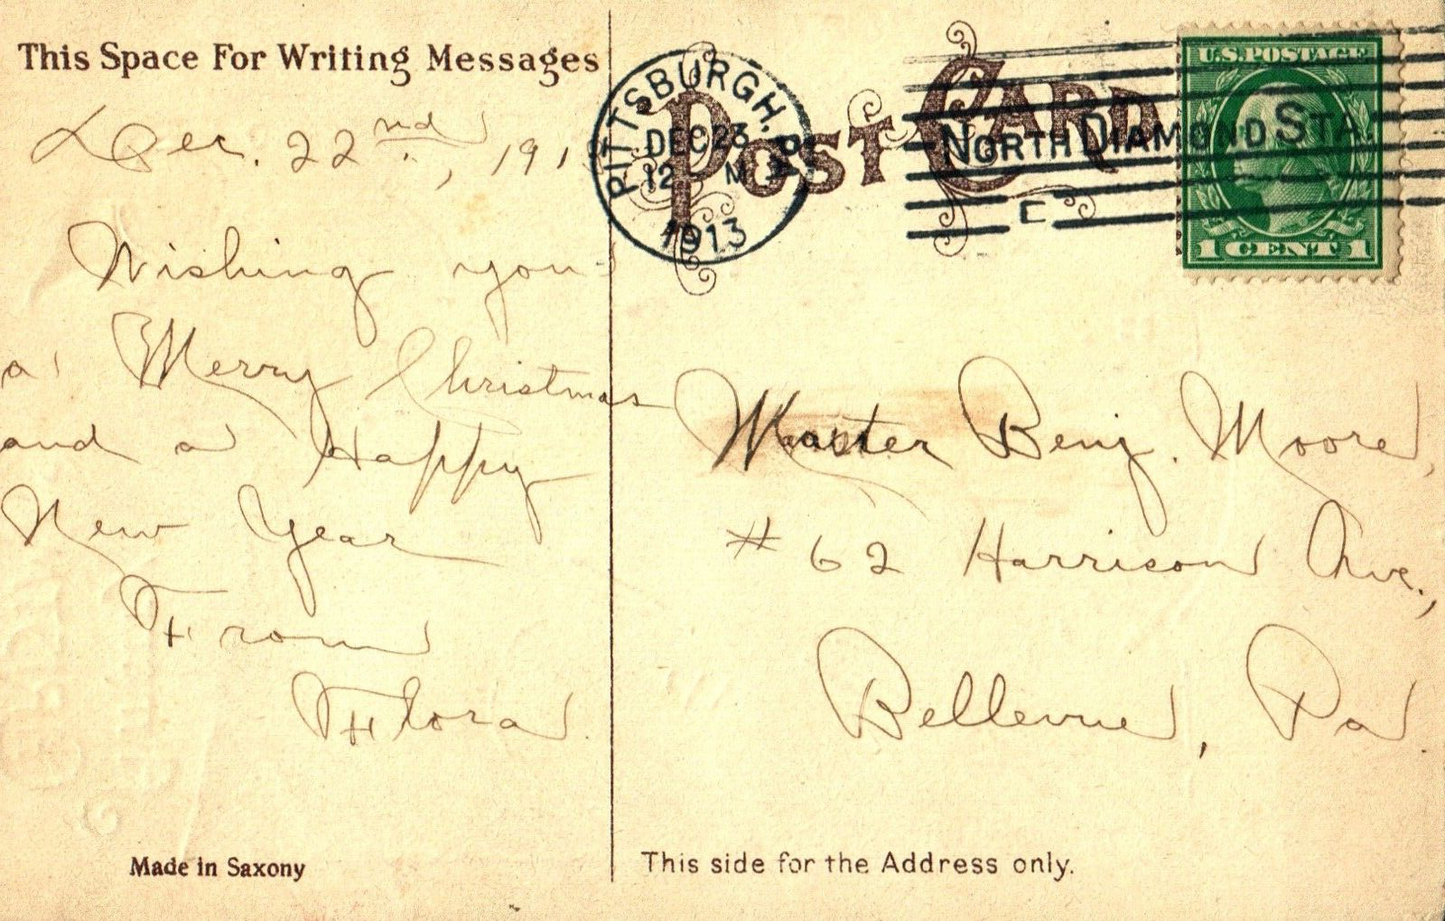 This Space For Writing Messages
Dec. 22nd, 191
Wishing you
a Merry Christmas
and a Happy
New Year
From
Flora.
Made in Saxony
POST CARD
PITTSBURGH, PA.
DEC 23
12 M
1913
NORTH DIAMOND STA.
U.S. POSTAGE
1 CENT 1
Master Benj. Moore,
# 62 Harrison Ave.,
Bellevue, Pa.
This side for the Address only.